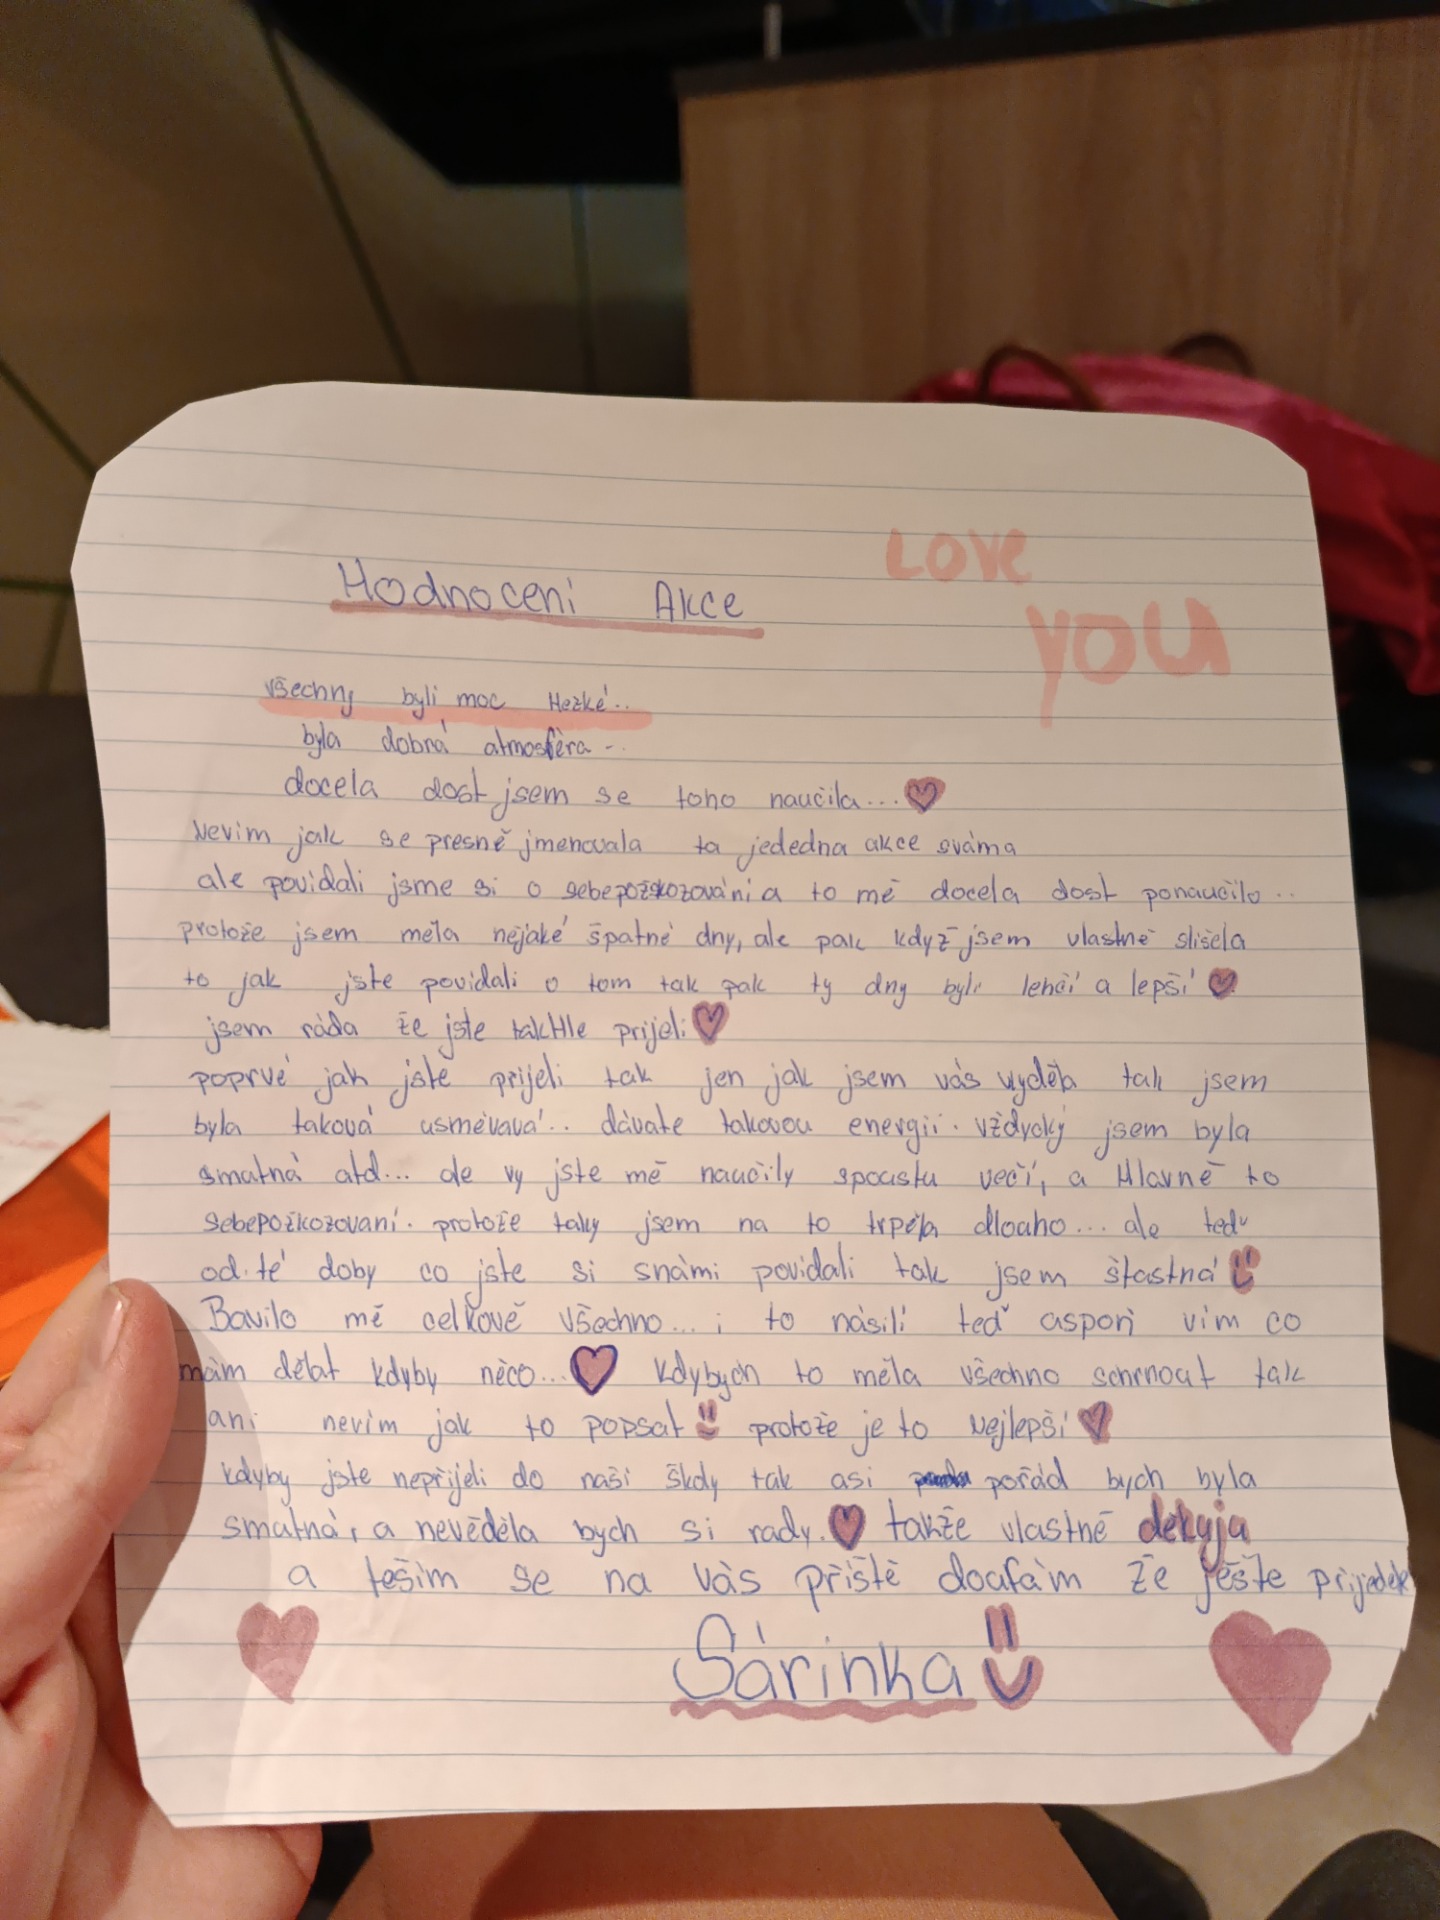 LOVE
YOU
Hodnoceni Akce
všechny byli moc Hezké..
byla dobrá atmosféra ..
docela dost jsem se toho naučila...
Nevim jak se presně jmenovala ta jededna akce sváma
ale povidali jsme si o sebepožskozováni a to mě docela dost ponaučilo..
protože jsem měla nějaké špatné dny, ale pak když jsem vlastně slišela
to jak jste povidali o tom tak pak ty dny byli lehčí a lepší
jsem ráda že jste takHle prijeli
poprvé jak jste přijeli tak jen jak jsem vás vyděla tak jsem
byla taková usměvavá.. dáváte takovou energii. vždycky jsem byla
smatná atd... ale vy jste mě naučily spoustu večí, a Hlavně to
sebepožkozovaní. protože taky jsem na to trpěla dlouho... ale teď
od té doby co jste si snámi povidali tak jsem štastná
Bavilo mě celkově všechno... i to násilí teď aspoň vim co
mám dělat kdyby něco... Kdybych to měla všechno schrnout tak
ani nevim jak to popsat protože je to Nejlepší
kdyby jste nepřijeli do naší školy tak asi pořád bych byla
smatná, a nevěděla bych si rady. takže vlastně děkuju
a tešim se na vás příště doufám že ještě prijedete
Sárinka